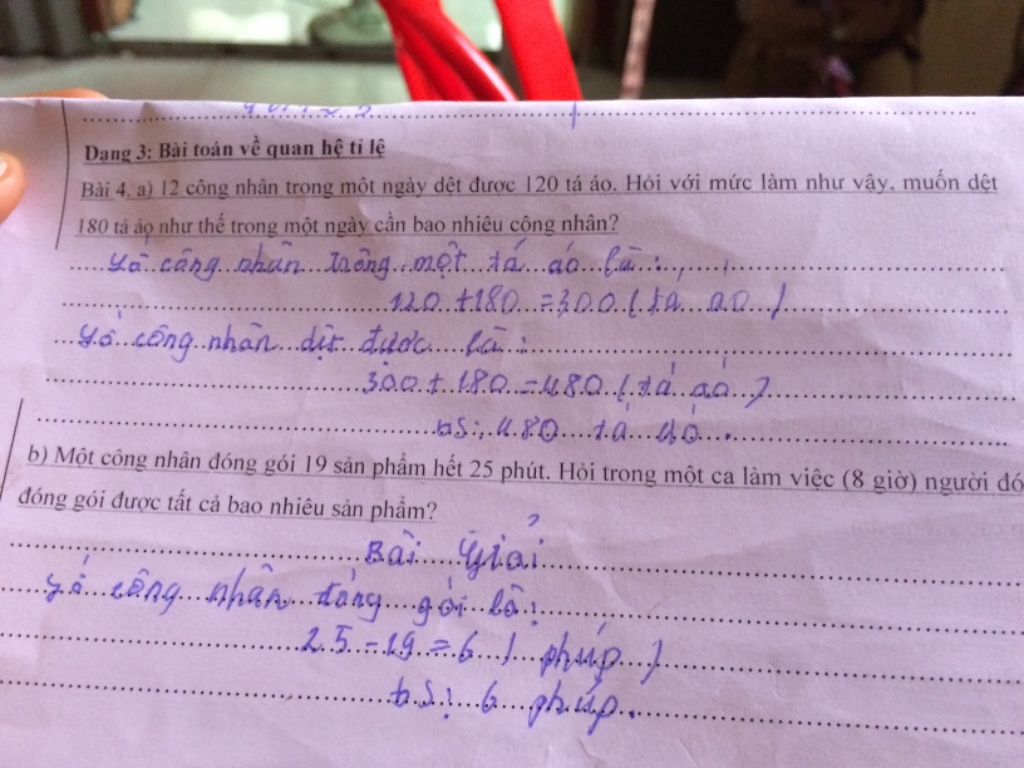 Dạng 3: Bài toán về quan hệ tỉ lệ
Bài 4. a) 12 công nhân trong một ngày dệt được 120 tá áo. Hỏi với mức làm như vậy, muốn dệt
180 tá áo như thế trong một ngày cần bao nhiêu công nhân?
Số công nhân trong một tá áo là:
120 + 180 = 300 ( tá áo )
Số công nhân dịt được là:
300 + 180 = 480 ( tá áo )
ĐS: 480 tá áo.
b) Một công nhân đóng gói 19 sản phẩm hết 25 phút. Hỏi trong một ca làm việc (8 giờ) người đó
đóng gói được tất cả bao nhiêu sản phẩm?
Bài Giải
Số công nhân đóng gói là:
25 - 19 = 6 ( phúp )
ĐS: 6 phúp.